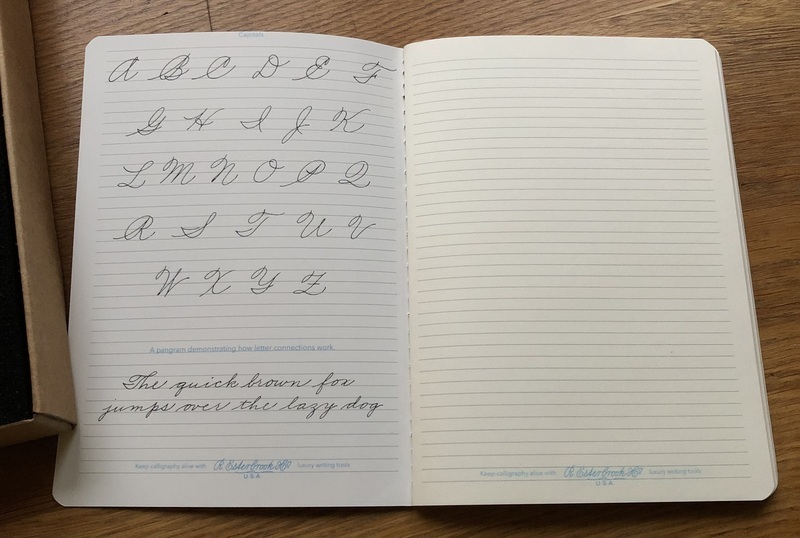 Capitals
A B C D E F
G H I J K
L M N O P Q
R S T U V
W X Y Z
A pangram demonstrating how letter connections work.
The quick brown fox
jumps over the lazy dog
Keep calligraphy alive with R. Esterbrook & Co luxury writing tools
USA
Keep calligraphy alive with R. Esterbrook & Co luxury writing tools
USA